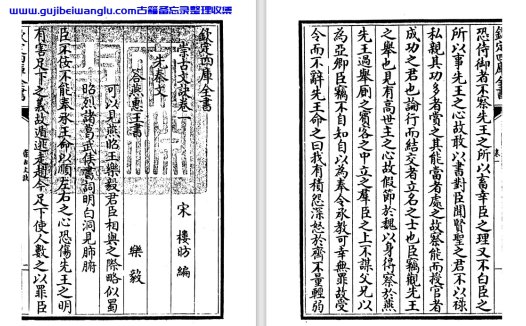 www.gujibeiwanglu.com古籍备忘录整理收集
欽定四庫全書
崇古文訣卷一
宋 樓昉 編
先秦文
答燕惠王書
樂毅
可以見燕昭王樂毅君臣相與之際略似蜀
昭烈諸葛武侯書詞明白洞見肺腑
臣不佞不能奉承王命以順左右之心恐傷先王之明
有害足下之義故遁逃走趙今足下使人數之以罪臣
崇古文訣
欽定四庫全書
恐侍御者不察先王之所以畜幸臣之理又不白臣之
所以事先王之心故敢以書對臣聞賢聖之君不以祿
私親其功多者賞之其能當者處之故察能而授官者
成功之君也論行而結交者立名之士也臣竊觀先王
之舉也見有高世主之心故假節於魏以身得察於燕
先王過舉厠之賔客之中立之羣臣之上不謀父兄以
為亞卿臣竊不自知自以為奉令承教可幸無罪故受
令而不辭先王命之曰我有積怨深怒於齊不量輕弱